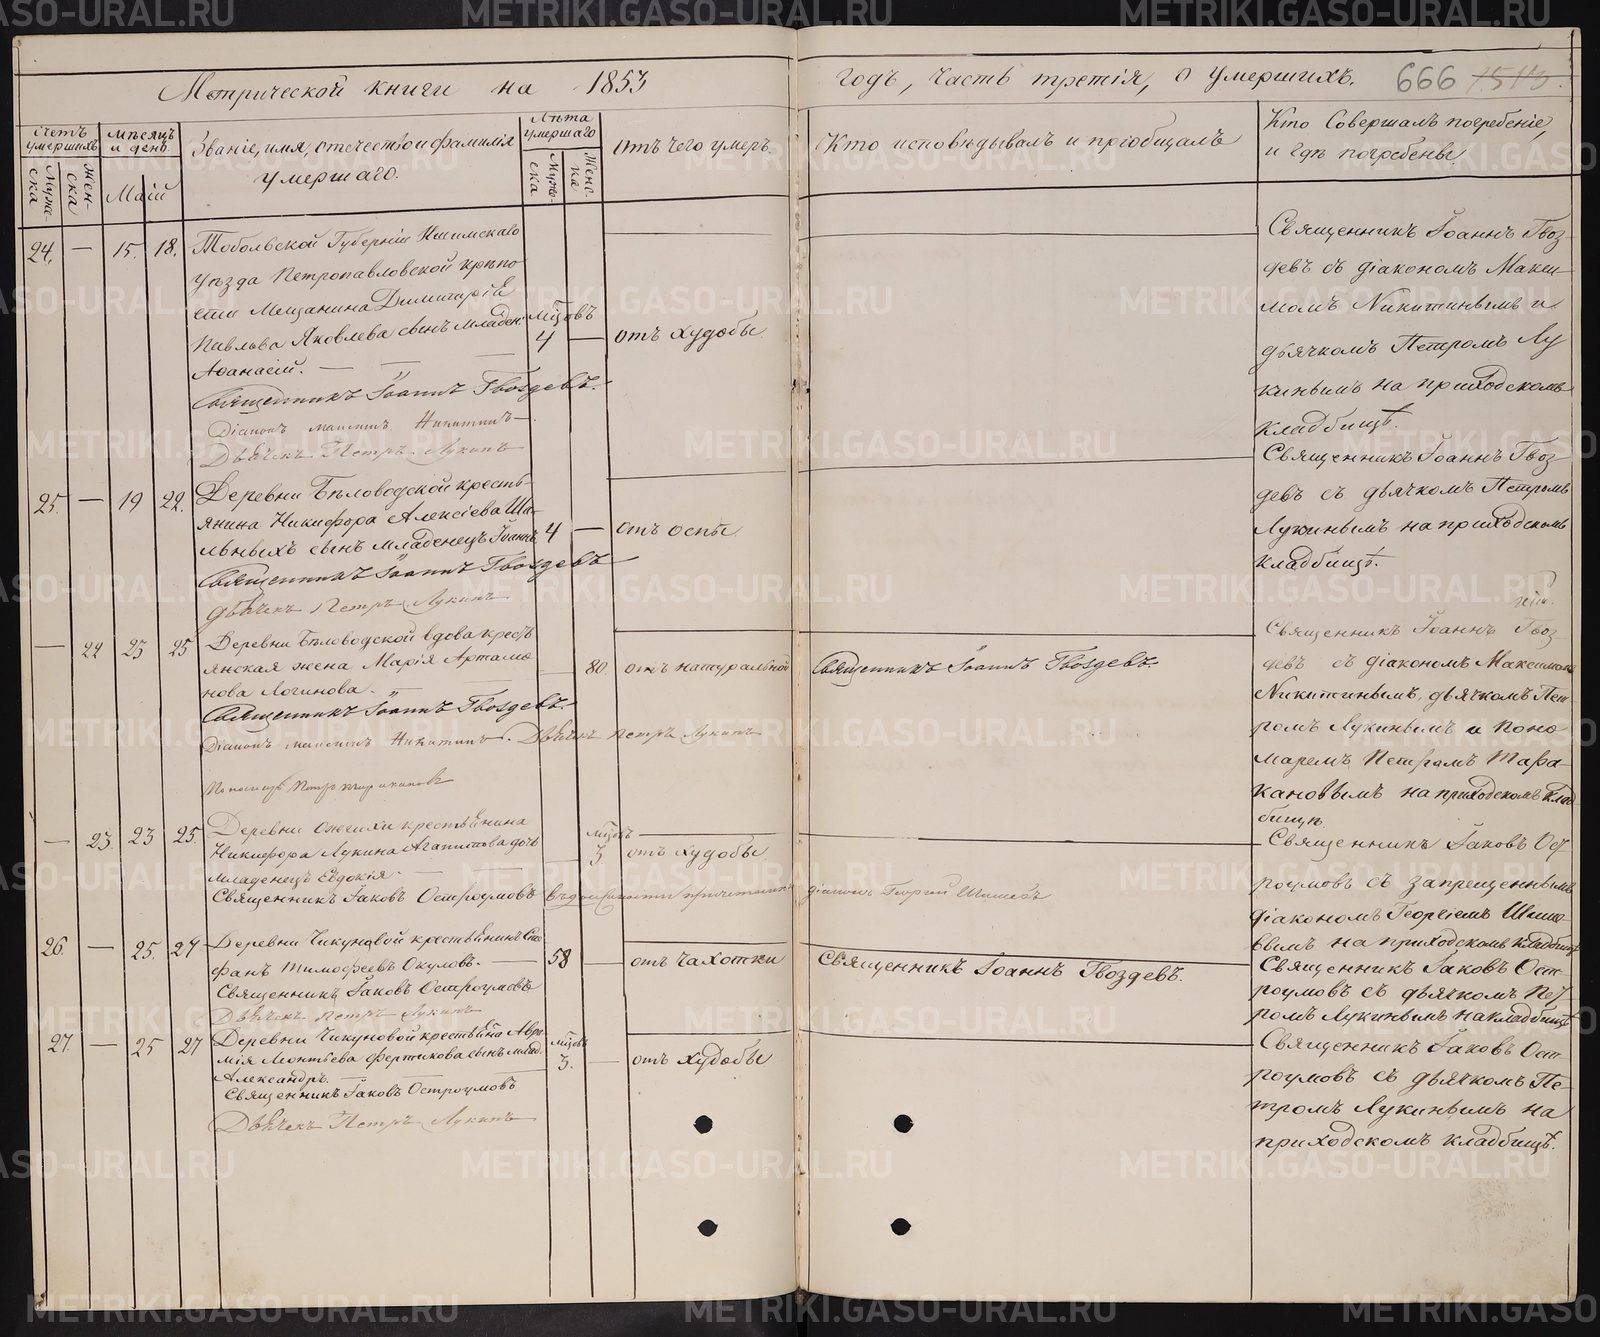 Метрической книги на 1853
годъ, часть третія, о умершихъ. 666
Счетъ умершихъ
Муже-ска
Жен-ска
Мѣсяцъ и день.
Маій
Званіе, имя, отечество и фамилія
умершаго.
Лѣта умершаго
Муже-ска
Женс-ка
Отъ чего умеръ.
Кто исповѣдывалъ и пріобщалъ
Кто Совершалъ погребеніе,
и гдѣ погребены.
24. — 15. 18. Тобольской Губерніи Ишимскаго
уѣзда Петропавловской крѣпо
сти Мещанина Димитрія
Павлова Яковлева сынъ младен.
Аѳанасій. —
мцовъ
4 — отъ худобы
Священникъ Іоаннъ Гвоздевъ.
Діаконъ Максимъ Никитинъ
Дьячекъ Петръ Лукинъ
Священникъ Іоаннъ Гвоз
девъ съ діакономъ Макси
момъ Никитинымъ и
дьячкомъ Петромъ Лу
кинымъ на приходскомъ
кладбищѣ.
25. — 19 22. Деревни Бѣловодской кресть-
янина Никифора Алексіева Ша-
льныхъ сынъ младенецъ Іоаннъ 4 — отъ оспы
Священникъ Іоаннъ Гвоздевъ
Дьячекъ Петръ Лукинъ
Священникъ Іоаннъ Гвоз
девъ съ дьячкомъ Петромъ
Лукинымъ на приходскомъ
кладбищѣ.
— 22 23 25 Деревни Бѣловодской вдова крест
янская жена Марія Артамо
нова Логинова. —
80. отъ натуральной
Священникъ Іоаннъ Гвоздевъ.
Священникъ Іоаннъ Гвоздевъ.
Діаконъ Максимъ Никитинъ. Дьячекъ Петръ Лукинъ
Пономарь Петръ
Священникъ Іоаннъ Гвоз
девъ съ діакономъ Максимомъ
Никитинымъ, дьячкомъ Пет
ромъ Лукинымъ и Поно
маремъ Петромъ Тара
кановымъ на приходскомъ клад
бищѣ.
— 23. 23 25. Деревни крестьянина
Никифора Лукина Агапитова дочь
Младенецъ Евдокія. —
мцовъ
3 отъ худобы
Священникъ Іаковъ Остроумовъ
діаконъ Георгій Шишевъ
Священникъ Іаковъ Ост
роумовъ съ запрещеннымъ
діакономъ Георгіемъ Шише
вымъ на приходскомъ кладбищѣ
26. — 25. 27 Деревни Чикуновой крестьянинъ Сте
фанъ Тимоѳеевъ Окуловъ. — 58 — отъ чахотки
Священникъ Іоаннъ Гвоздевъ.
Священникъ Іаковъ Остроумовъ
Дьячекъ Петръ Лукинъ
Священникъ Іаковъ Ост
роумовъ съ дьячкомъ Пет
ромъ Лукинымъ на кладбищѣ
27. — 25 27 Деревни Чикуновой крестьянина Авра
мія Леонтьева Фертикова сынъ млад.
Александръ.
мцовъ
3. — отъ худобы
Священникъ Іаковъ Остроумовъ
Дьячекъ Петръ Лукинъ
Священникъ Іаковъ Ост
роумовъ съ дьячкомъ Пе
тромъ Лукинымъ на
приходскомъ кладбищѣ.
METRIKI.GASO-URAL.RU